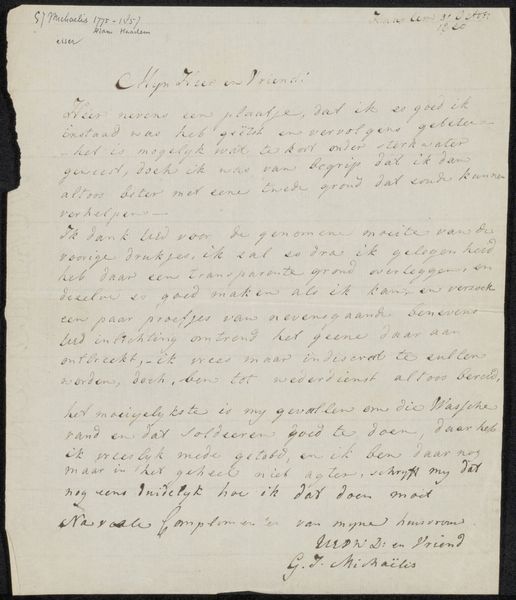 GJ Michaelis 1775 - 1857
Adam Haarlem
etser
31 Octob:
1820
Mijn Heer en Vriend!
Hier nevens een plaatje, dat ik so goed ik
instaad was heb geëtst en vervolgens gebeten
het is mogelyk wat te kort onder sterkwater
geweest, doch ik was van begrip dat ik dan
altoos beter met eene twede grond dat soude kunnen
verhelpen —
Ik dank Ued voor de genomene moeite van de
voorige drukjes, ik sal so dra ik gelegenheid
heb daar een transparente grond overleggen, en
deselve so goed maken als ik kan, en versoek
een paar proefjes van nevensgaande benevens
Ued inlichting omtrend het geene daar aan
ontbreekt, – ik vrees maar indiscreet te sullen
worden, doch, ben tot wederdienst altoos bereid,
het moeyelykste is my gevallen om die Wassche
rand en dat soldeeren goed te doen, daar heb
ik vreeslyk mede getobd, en ik ben daar nog
maar in het geheel niet agter, schryft my dat
nog eens duidelyk hoe ik dat doen moet
Na veele Complimenten van myne huisvrouw
UEDW: D: en Vriend
G. J. Michaëlis